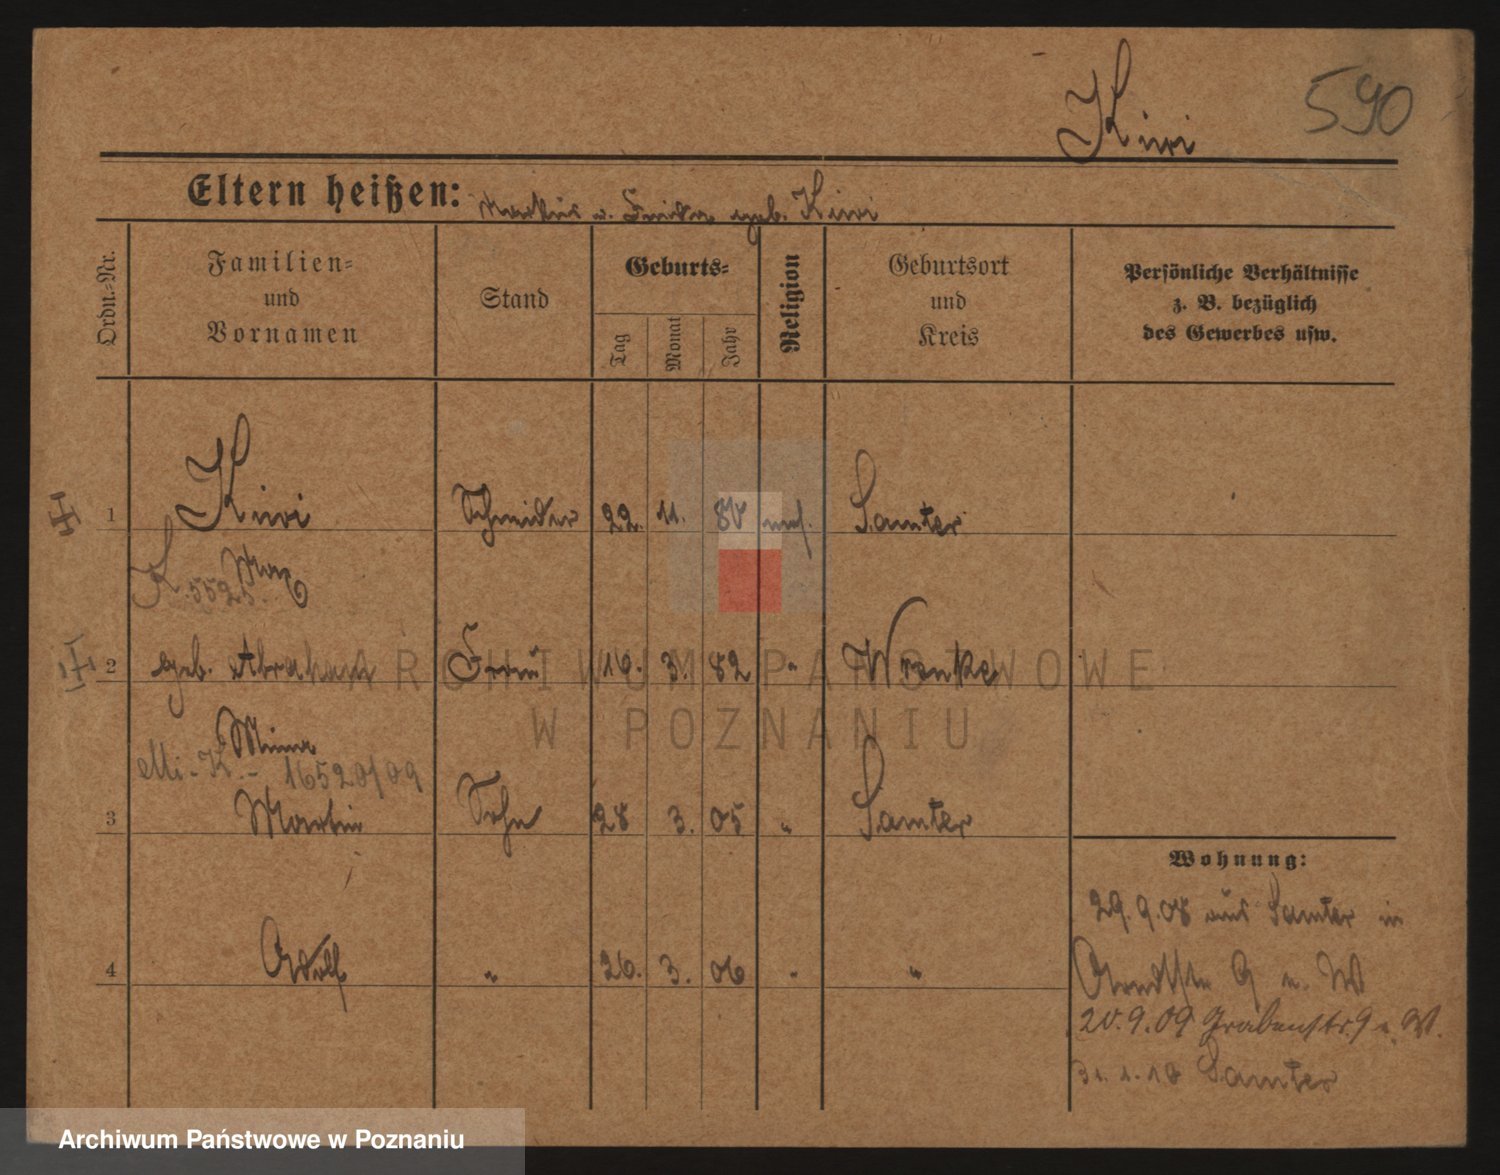 590
Kiwi
Eltern heißen: Markus u. Frieda geb. Kiwi
Ordn.-Nr.
Familien- und Vornamen
Stand
Geburts-
Tag
Monat
Jahr
Religion
Geburtsort und Kreis
Persönliche Verhältnisse
z. B. bezüglich
des Gewerbes usw.
1 Kiwi Schneider 22. 11. 80 mos. Samter
Max
K 5525.
2 geb. Abraham Frau 16. 3. 82 " Wronke
Minna
Mi - K. - 16520/09
3 Martin Sohn 28 3. 05 " Samter
Wohnung:
29. 9. 08 aus Samter in
4 Adolf " 26. 3. 06 " "
Arndtstr 9 b. W
20. 9. 09 Grabenstr. 9 b. W.
31. 1. 10 Samter
ARCHIWUM PAŃSTWOWE
W POZNANIU
Archiwum Państwowe w Poznaniu